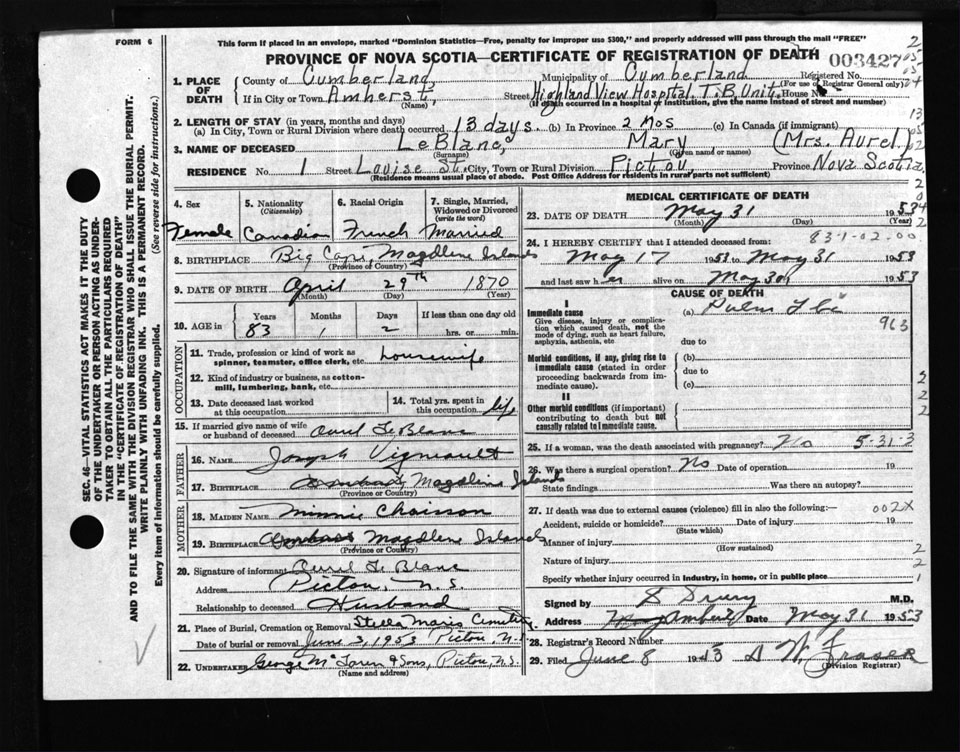 FORM 6
This form if placed in an envelope, marked "Dominion Statistics—Free, penalty for improper use $300," and properly addressed will pass through the mail "FREE"
PROVINCE OF NOVA SCOTIA—CERTIFICATE OF REGISTRATION OF DEATH
003427
1. PLACE OF DEATH
County of Cumberland Municipality of Cumberland Registered No.
(For use of Registrar General only)
If in City or Town Amherst, Street Highland View Hospital, T.B. Unit. House No.
(Name) (If death occurred in a hospital or institution, give the name instead of street and number)
2. LENGTH OF STAY (in years, months and days)
(a) In City, Town or Rural Division where death occurred 13 days. (b) In Province 2 mos (c) In Canada (if immigrant)
3. NAME OF DECEASED LeBlanc, Mary (Mrs. Aurel.)
(Surname) (Given name or names)
RESIDENCE No. 1 Street Louise St. City, Town or Rural Division Pictou, Province Nova Scotia
(Residence means usual place of abode. Post Office Address for residents in rural parts not sufficient)
4. Sex
Female
5. Nationality (Citizenship)
Canadian
6. Racial Origin
French
7. Single, Married, Widowed or Divorced (write the word)
Married
8. BIRTHPLACE Big Cape, Magdlene Islands
(Province or Country)
9. DATE OF BIRTH April 29th 1870
(Month) (Day) (Year)
10. AGE in Years Months Days If less than one day old
83 1 2 hrs. or min.
OCCUPATION
11. Trade, profession or kind of work as spinner, teamster, office clerk, etc. housewife
12. Kind of industry or business, as cotton-mill, lumbering, bank, etc.
13. Date deceased last worked at this occupation
14. Total yrs. spent in this occupation life
15. If married give name of wife or husband of deceased Aurel LeBlanc
FATHER
16. NAME Joseph Vigneault
17. BIRTHPLACE Magdline Islands
(Province or Country)
MOTHER
18. MAIDEN NAME Minnie Chaisson
19. BIRTHPLACE Magdlene Islands
(Province or Country)
20. Signature of informant Aurel LeBlanc
Address Pictou, N.S.
Relationship to deceased Husband
21. Place of Burial, Cremation or Removal Stella Maris Cemetery
Date of burial or removal June 3, 1953 Pictou, N.S.
22. UNDERTAKER George McLaren & Sons, Pictou, N.S.
(Name and address)
MEDICAL CERTIFICATE OF DEATH
23. DATE OF DEATH May 31 1953
(Month) (Day) (Year)
24. I HEREBY CERTIFY that I attended deceased from: 83-1-02-00
May 17 1953 to May 31 1953
and last saw her alive on May 30 1953
CAUSE OF DEATH
I
Immediate cause (a) Pulm Tbc
Give disease, injury or complication which caused death, not the mode of dying, such as heart failure, asphyxia, asthenia, etc
963
due to
Morbid conditions, if any, giving rise to immediate cause (stated in order proceeding backwards from immediate cause).
(b)
due to
(c)
II
Other morbid conditions (if important) contributing to death but not causally related to immediate cause.
25. If a woman, was the death associated with pregnancy? No 5-31-3
26. Was there a surgical operation? No Date of operation 19
State findings Was there an autopsy?
27. If death was due to external causes (violence) fill in also the following:— 002X
Accident, suicide or homicide? Date of injury 19
(State which)
Manner of injury
(How sustained)
Nature of injury
Specify whether injury occurred in industry, in home, or in public place
Signed by S Drury M.D.
Address Amherst Date May 31 1953
28. Registrar's Record Number
29. Filed June 8 1953 D W Fraser
(Division Registrar)
SEC. 46—VITAL STATISTICS ACT MAKES IT THE DUTY
OF THE UNDERTAKER OR PERSON ACTING AS UNDER-
TAKER TO OBTAIN ALL THE PARTICULARS REQUIRED
IN THE "CERTIFICATE OF REGISTRATION OF DEATH"
AND TO FILE THE SAME WITH THE DIVISION REGISTRAR WHO SHALL ISSUE THE BURIAL PERMIT.
WRITE PLAINLY WITH UNFADING INK. THIS IS A PERMANENT RECORD.
Every item of information should be carefully supplied. (See reverse side for instructions.)